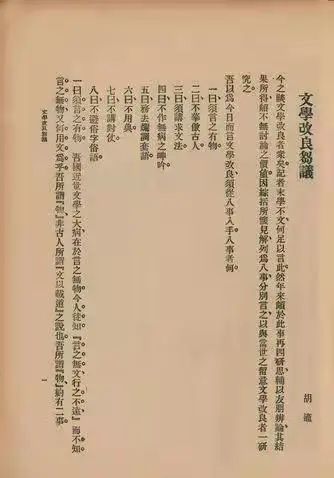 文學改良芻議
胡適
今之談文學改良者衆矣記者末學不文何足以言此然年來頗於此事再四研思輔以友朋辨論其結
果所得頗不無討論之價值因綜括所懷見解列爲八事分別言之以與當世之留意文學改良者一研
究之。
吾以爲今日而言文學改良須從八事入手八事者何。
一曰須言之有物
二曰不摹倣古人。
三曰須講求文法。
四曰不作無病之呻吟
五曰務去爛調套語
六曰不用典。
七曰不講對仗
八曰不避俗字俗語。
一曰須言之有物 吾國近世文學之大病在於言之無物今人徒知『言之無文行之不遠』而不知
言之無物又何用文爲乎吾所謂『物』非古人所謂『文以載道』之說也吾所謂『物』約有二事。
文學改良芻議
一